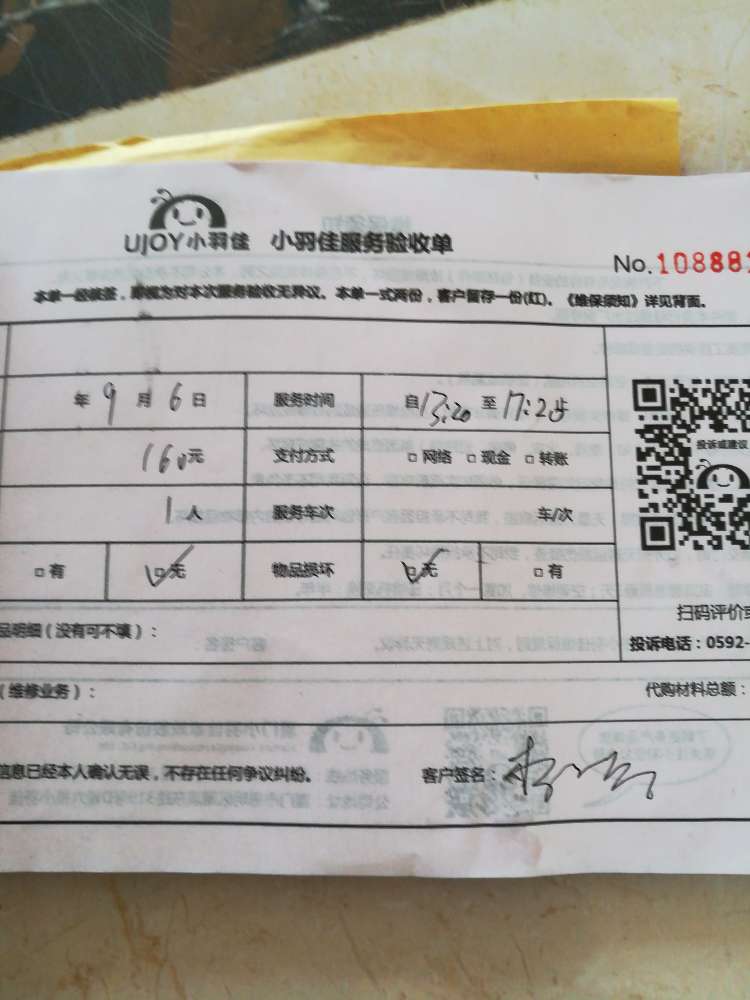 UJOY小羽佳 小羽佳服务验收单
No.108882
本单一经核签，即视为对本次服务验收无异议。本单一式两份，客户留存一份(红)。《维保须知》详见背面。
年 9 月 6 日 服务时间 自13:20 至17:20止
160元 支付方式 □ 网络 □ 现金 □ 转账
投诉或建议
1人 服务车次 车/次
□ 有 □ 无 物品损坏 □ 无 □ 有
扫码评价或
品明细（没有可不填）：
投诉电话：0592-
（维修业务）：
代购材料总额：
信息已经本人确认无误，不存在任何争议纠纷。 客户签名：